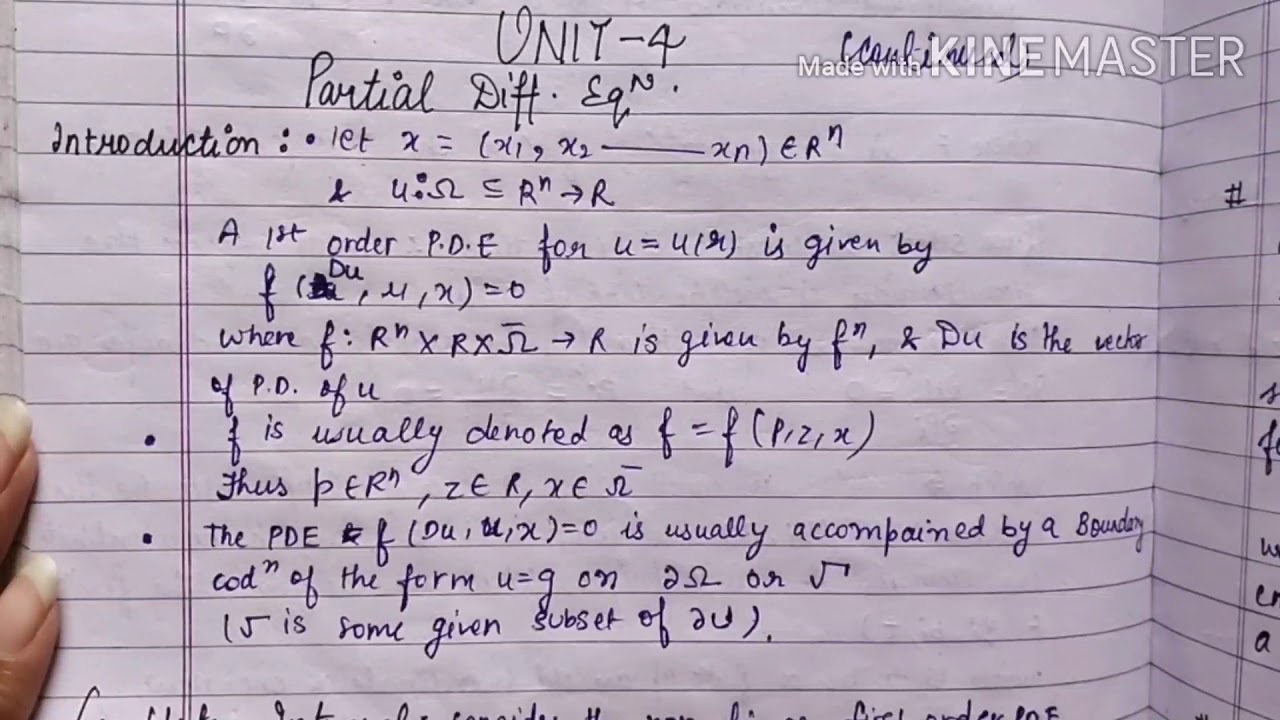 UNIT-4
(Continued)
Made with KINEMASTER
Partial Diff. Eqⁿ.
Introduction : • let x = (x₁, x₂ ——— xn) ∈ Rⁿ
& u: Ω ⊆ Rⁿ → R
#
A 1st order P.D.E for u = u(x) is given by
f (Du, u, x) = 0
where f: Rⁿ × R × Ω̅ → R is given by fⁿ, & Du is the vector
of P.D. of u
• f is usually denoted as f = f (P, z, x)
Thus p ∈ Rⁿ, z ∈ R, x ∈ Ω̅
• The PDE f (Du, u, x) = 0 is usually accompained by a Boundary
codⁿ of the form u = g on ∂Ω or Γ
(Γ is some given subset of ∂U).
first order PDE